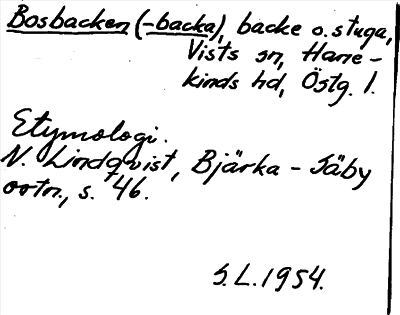 Bosbacken (-backa), backe o. stuga,
Vists sn, Hane-
kinds hd, Östg. l.
Etymologi.
N. Lindqvist, Bjärka-Säby
ortn., s. 46.
S.L. 1954.